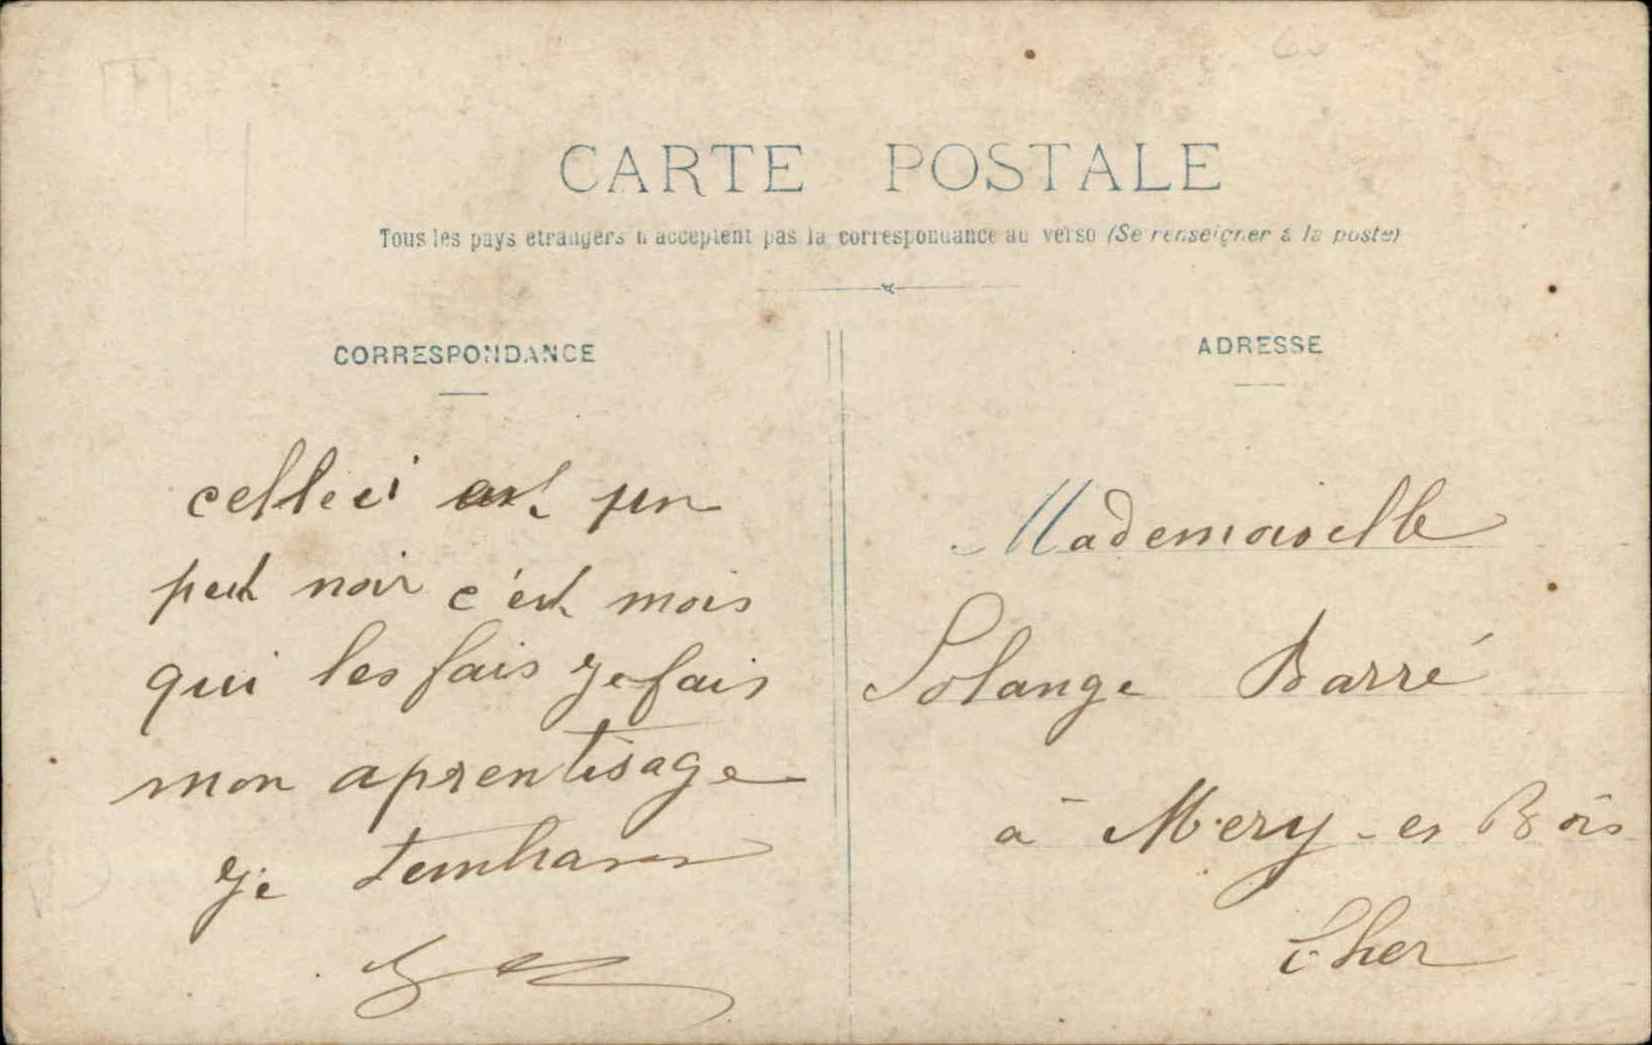 CARTE POSTALE
Tous les pays étrangers n'acceptent pas la correspondance au verso (Se renseigner à la poste)
CORRESPONDANCE
celle ci est un
peut noir c'est mois
qui les fais je fais
mon aprentisage
je tembrasse
ADRESSE
Mademoiselle
Solange Barré
à Mery-es Bois
Cher